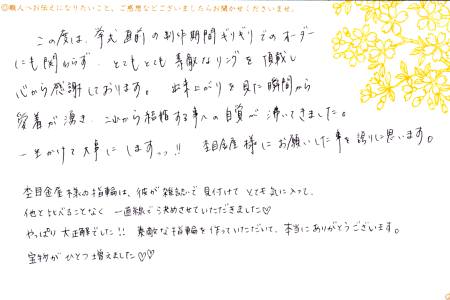 ◎職人へお伝えになりたいこと、ご感想などございましたらお聞かせくださいませ。
この度は、挙式直前の制作期間ギリギリでのオーダー
にも関わらず、とてもとても素敵なリングを頂戴し
心から感謝しております。出来上がりを見た瞬間から
愛着が湧き、これから結婚する事への自覚が沸いてきました。
一生かけて大事にしますっっ!! 杢目金屋様にお願いした事を誇りに思います。
杢目金屋様の指輪は、彼が雑誌で見付けてとても気に入って、
他と比べることなく一直線で決めさせていただきました♡
やっぱり大正解でした!! 素敵な指輪を作っていただいて、本当にありがとうございます。
宝物がひとつ増えました♡♡